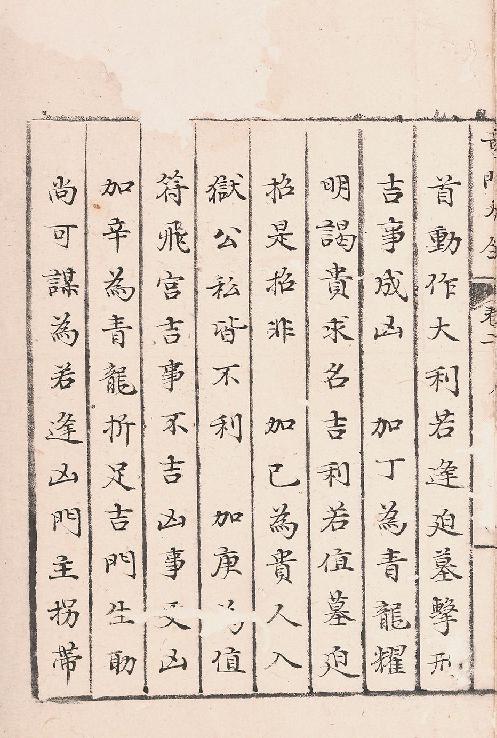 首動作大利若逢迫墓擊刑
吉事成凶 加丁為青龍耀
明謁貴求名吉利若值墓迫
招是招非 加己為貴人入
獄公私皆不利 加庚為值
符飛宮吉事不吉凶事更凶
加辛為青龍折足吉門生助
尚可謀為若逢凶門主拐帶